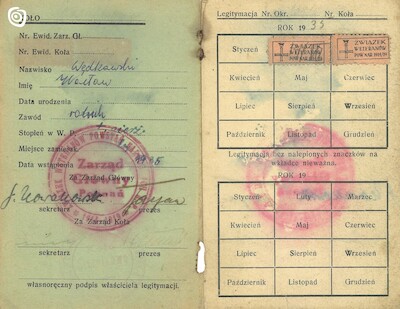 KOŁO
Nr. Ewid. Zarz. Gł.
Nr. Ewid. Koła
Nazwisko Wędkowski
Imię Wacław
Data urodzenia
Zawód rolnik
Stopień w W. P.
Miejsce zamieszk.
Data wstąpienia
Za Zarząd Główny
Zarząd
Główny
J. Nowakowski
sekretarz prezes
Za Zarząd Koła
sekretarz prezes
własnoręczny podpis właściciela legitymacji.
Legitymacja Nr. Okr. Nr. Koła
ROK 1935
Styczeń
ZWIĄZEK
WETERANÓW
POWSTAŃ
ZWIĄZEK
WETERANÓW
POWSTAŃ
Kwiecień Maj Czerwiec
Lipiec Sierpień Wrzesień
Październik Listopad Grudzień
Legitymacja bez nalepionych znaczków na
wkładce nieważna.
ROK 19
Styczeń Luty Marzec
Kwiecień Maj Czerwiec
Lipiec Sierpień Wrzesień
Październik Listopad Grudzień